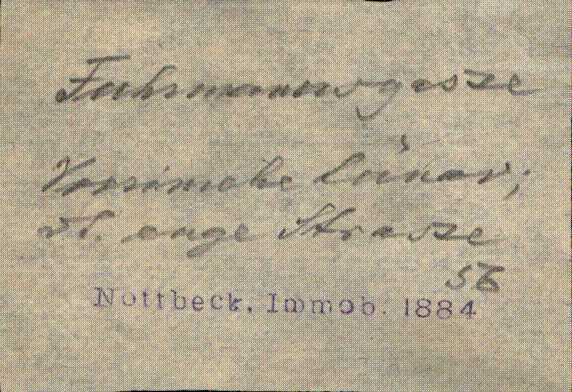 Fuhrmannsgasse
Voorimehe tänav;
kl. enge Strasse
56
Nottbeck, Immob. 1884